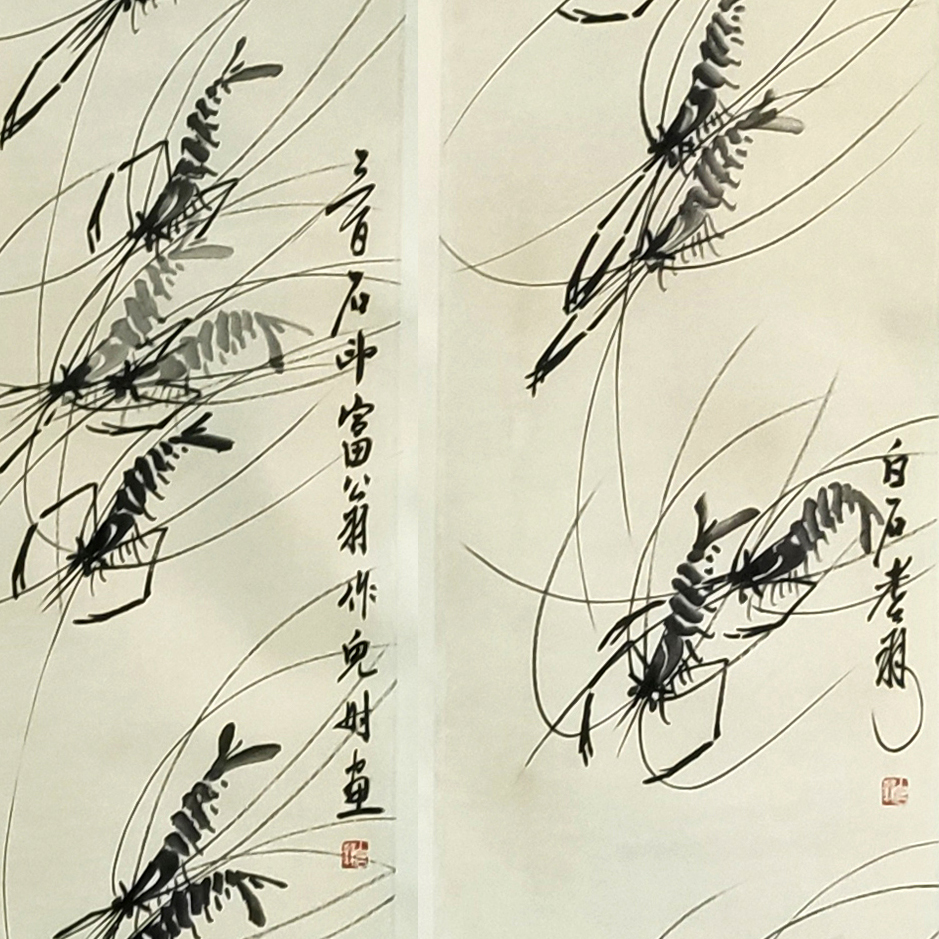 白石老翁
三百石印富翁作兒时畫